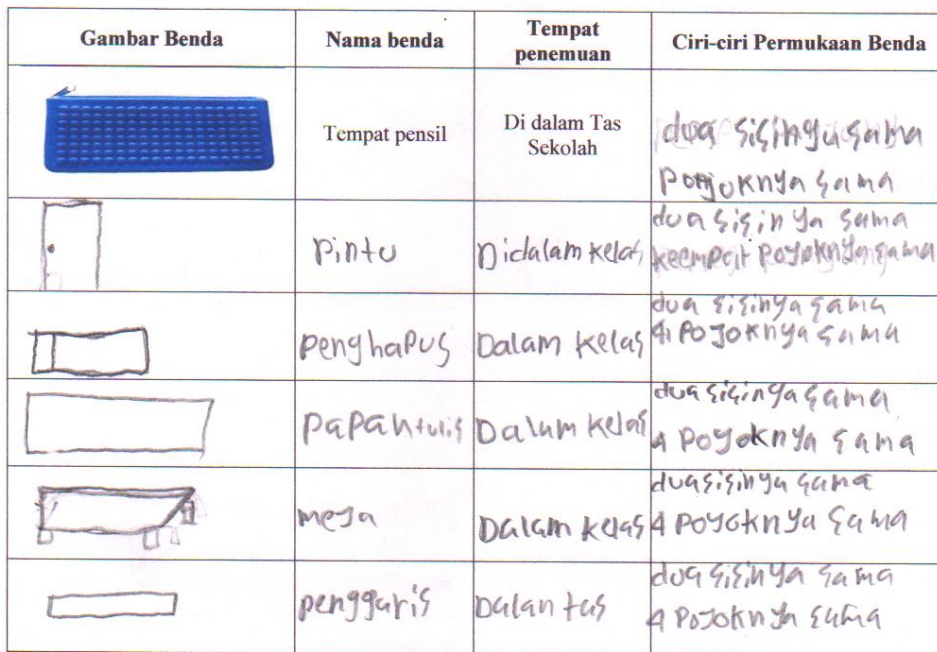 Gambar Benda
Nama benda
Tempat
penemuan
Ciri-ciri Permukaan Benda
Tempat pensil
Di dalam Tas
Sekolah
dua sisinya sama
Pojoknya sama
Pintu
Didalam kelas
dua sisinya sama
keempat pojoknya sama
penghapus
Dalam kelas
dua sisinya sama
4 pojoknya sama
papan tulis
Dalam kelas
dua sisinya sama
4 pojoknya sama
meja
Dalam kelas
dua sisinya sama
4 pojoknya sama
penggaris
Dalan tas
dua sisinya sama
4 pojoknya sama